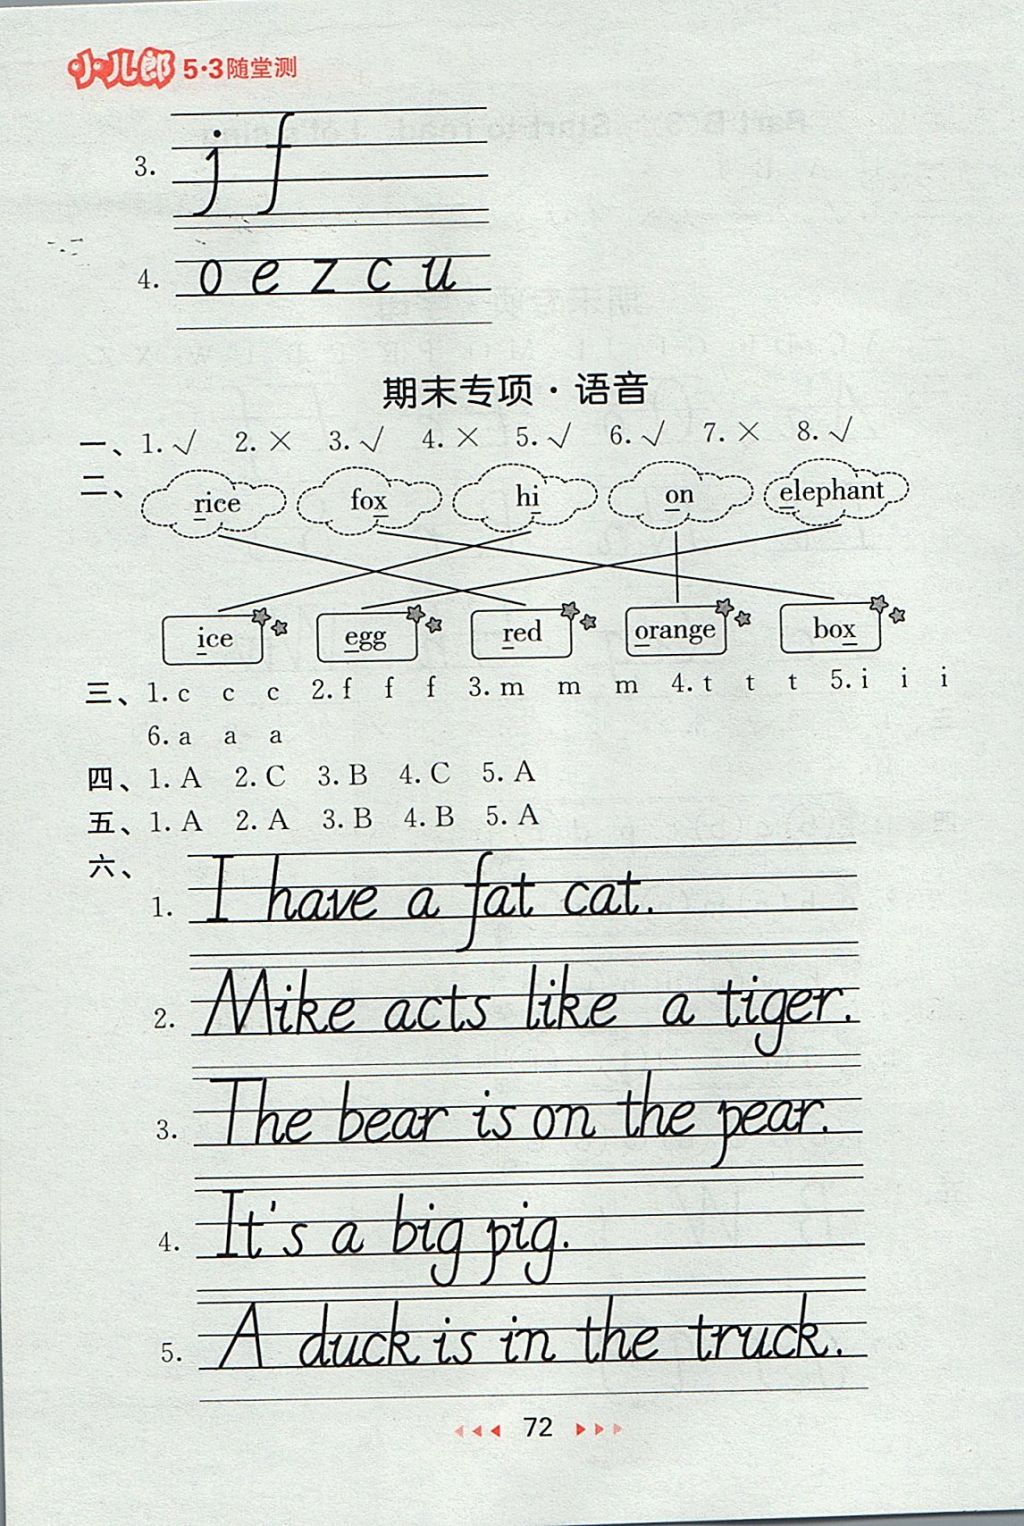 小儿郎 5·3随堂测
3. j f
4. o e z c u
期末专项·语音
一、1. √ 2. × 3. √ 4. × 5. √ 6. √ 7. × 8. √
二、 rice fox hi on elephant
ice egg red orange box
三、1. c c c 2. f f f 3. m m m 4. t t t 5. i i i
6. a a a
四、1. A 2. C 3. B 4. C 5. A
五、1. A 2. A 3. B 4. B 5. A
六、
1. I have a fat cat.
2. Mike acts like a tiger.
3. The bear is on the pear.
4. It's a big pig.
5. A duck is in the truck.
72